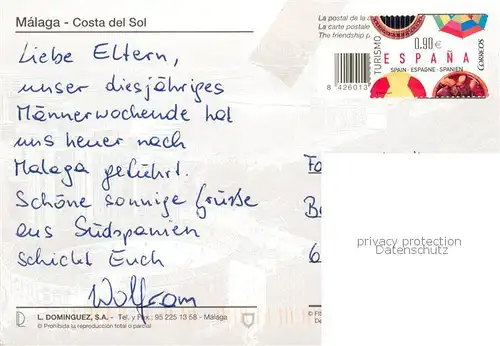 Málaga - Costa del Sol
La postal de la
La carte postale
The friendship p
TURISMO
0,90€
ESPAÑA
SPAIN · ESPAGNE · SPANIEN
CORREOS
8 426013
Liebe Eltern,
unser diesjähriges
Männerwochende hat
uns heuer nach
Malaga geführt.
Schöne sonnige Grüße
aus Südspanien
schickt Euch
Wolfram
Fa
Be
6
privacy protection
Datenschutz
L. DOMINGUEZ, S.A. - Tel. y Fax.: 95 225 13 58 - Málaga
© Prohibida la reproducción total o parcial
© FIS
De